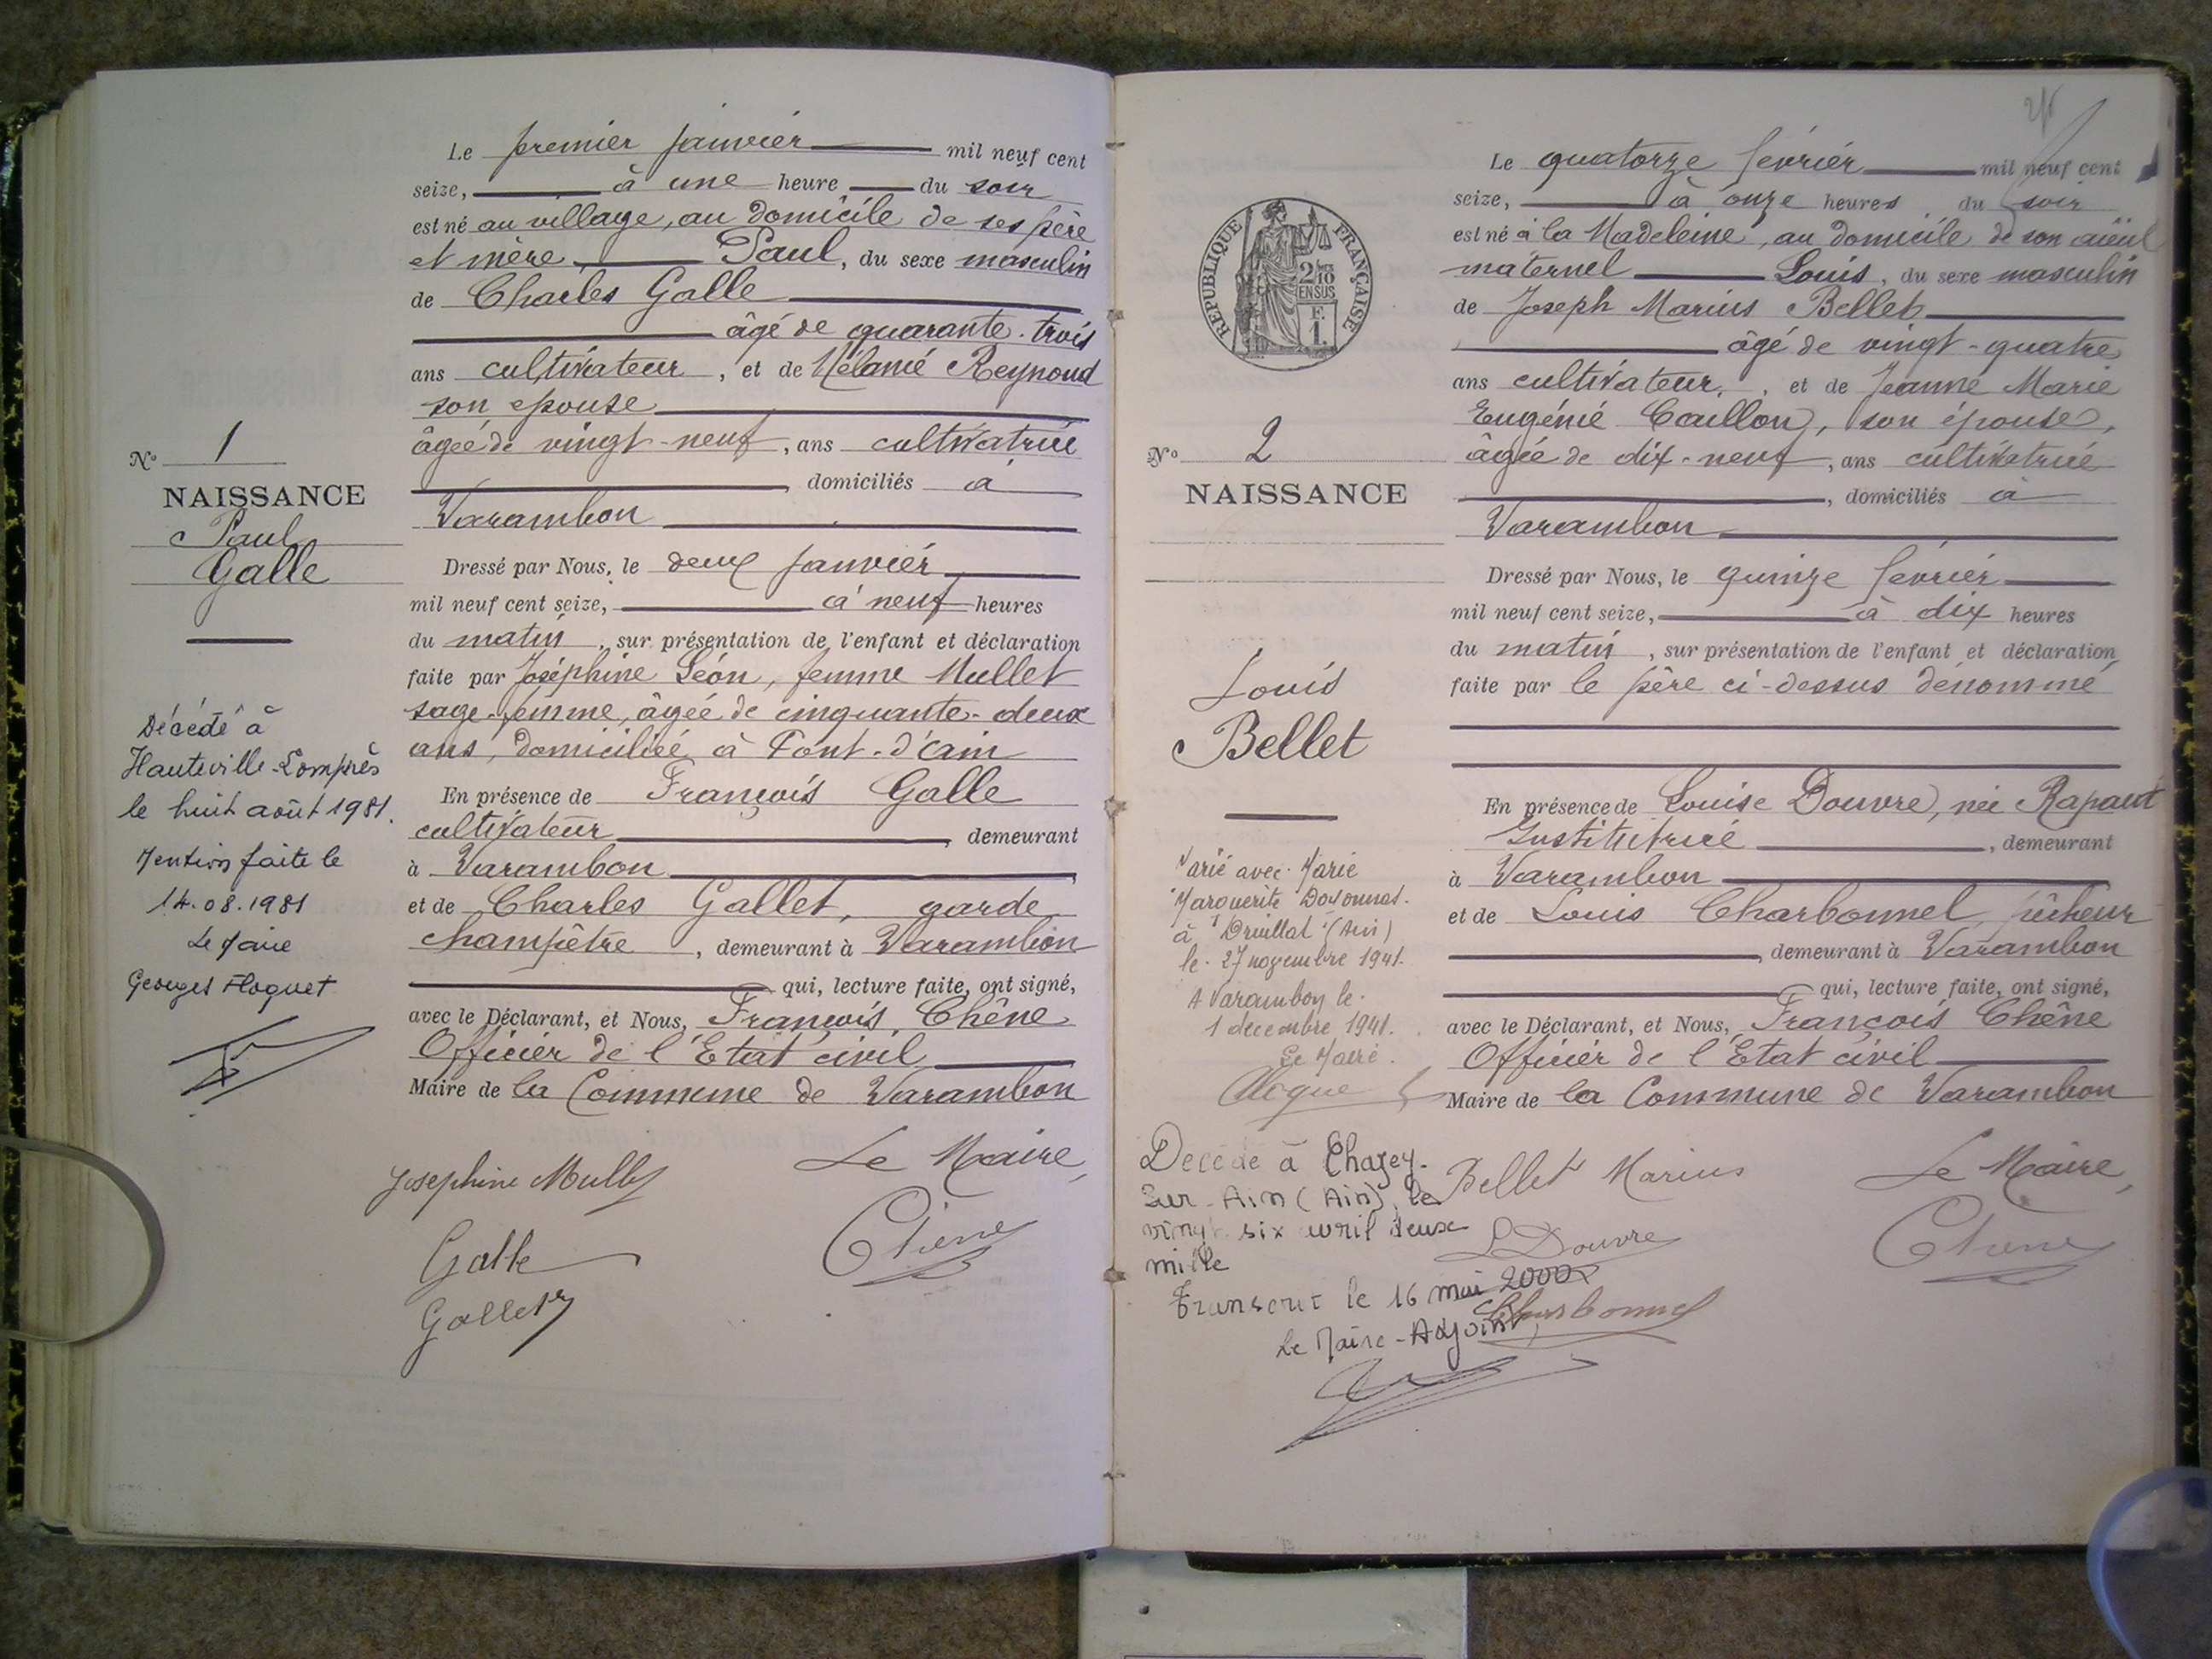 Le premier janvier mil neuf cent
seize, à une heure du soir
est né au village, au domicile de ses père
et mère, Paul, du sexe masculin
de Charles Galle
âgé de quarante-trois
ans cultivateur, et de Mélanie Reynoud
son épouse
âgée de vingt-neuf, ans cultivatrice
, domiciliés à
Varambon
Dressé par Nous, le deux janvier
mil neuf cent seize, à neuf heures
du matin, sur présentation de l'enfant et déclaration
faite par Joséphine Léon, femme Mullet
sage-femme, âgée de cinquante-deux
ans, domiciliée à Pont-d'Ain
En présence de François Galle
cultivateur, demeurant
à Varambon
et de Charles Gallet, garde
champêtre, demeurant à Varambon
qui, lecture faite, ont signé,
avec le Déclarant, et Nous, François Chêne
Officier de l'Etat civil
Maire de la Commune de Varambon
Josephine Mullet
Le Maire,
Galle
Chêne
Gallet
No 1
NAISSANCE
Paul
Galle
Décédé à
Hauteville-Lompnès
le huit août 1981.
Mention faite le
14.08.1981
Le Maire
Georges Floquet
Le quatorze février mil neuf cent
seize, à onze heures du soir
est né à la Madeleine, au domicile de son aïeul
maternel Louis, du sexe masculin
de Joseph Marius Bellet
âgé de vingt-quatre
ans cultivateur, et de Jeanne Marie
Eugénie Caillon, son épouse,
âgée de dix-neuf, ans cultivatrice
, domiciliés à
Varambon
Dressé par Nous, le quinze février
mil neuf cent seize, à dix heures
du matin, sur présentation de l'enfant et déclaration
faite par le père ci-dessus dénommé
En présence de Louise Douvre, née Rapaut
Institutrice, demeurant
à Varambon
et de Louis Charbonnel, pêcheur
, demeurant à Varambon
qui, lecture faite, ont signé,
avec le Déclarant, et Nous, François Chêne
Officier de l'Etat civil
Maire de la Commune de Varambon
Bellet Marius
Le Maire,
L Douvre
Chêne
Charbonnel
RÉPUBLIQUE FRANÇAISE
2/10
EN SUS
F.
1.
No 2
NAISSANCE
Louis
Bellet
Marié avec Marie
Marguerite
à Druillat (Ain)
le 27 novembre 1941.
A Varambon le
1 decembre 1941.
Le Maire.
Décédé à Chazey-
sur-Ain (Ain), le
vingt six avril deux
mille
Transcrit le 16 mai 2000
Le Maire-Adjoint,